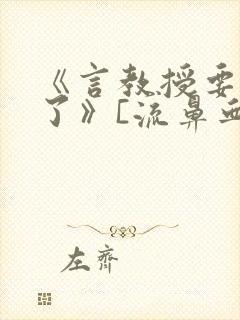 《言教授要
了》[流鼻血
左齋